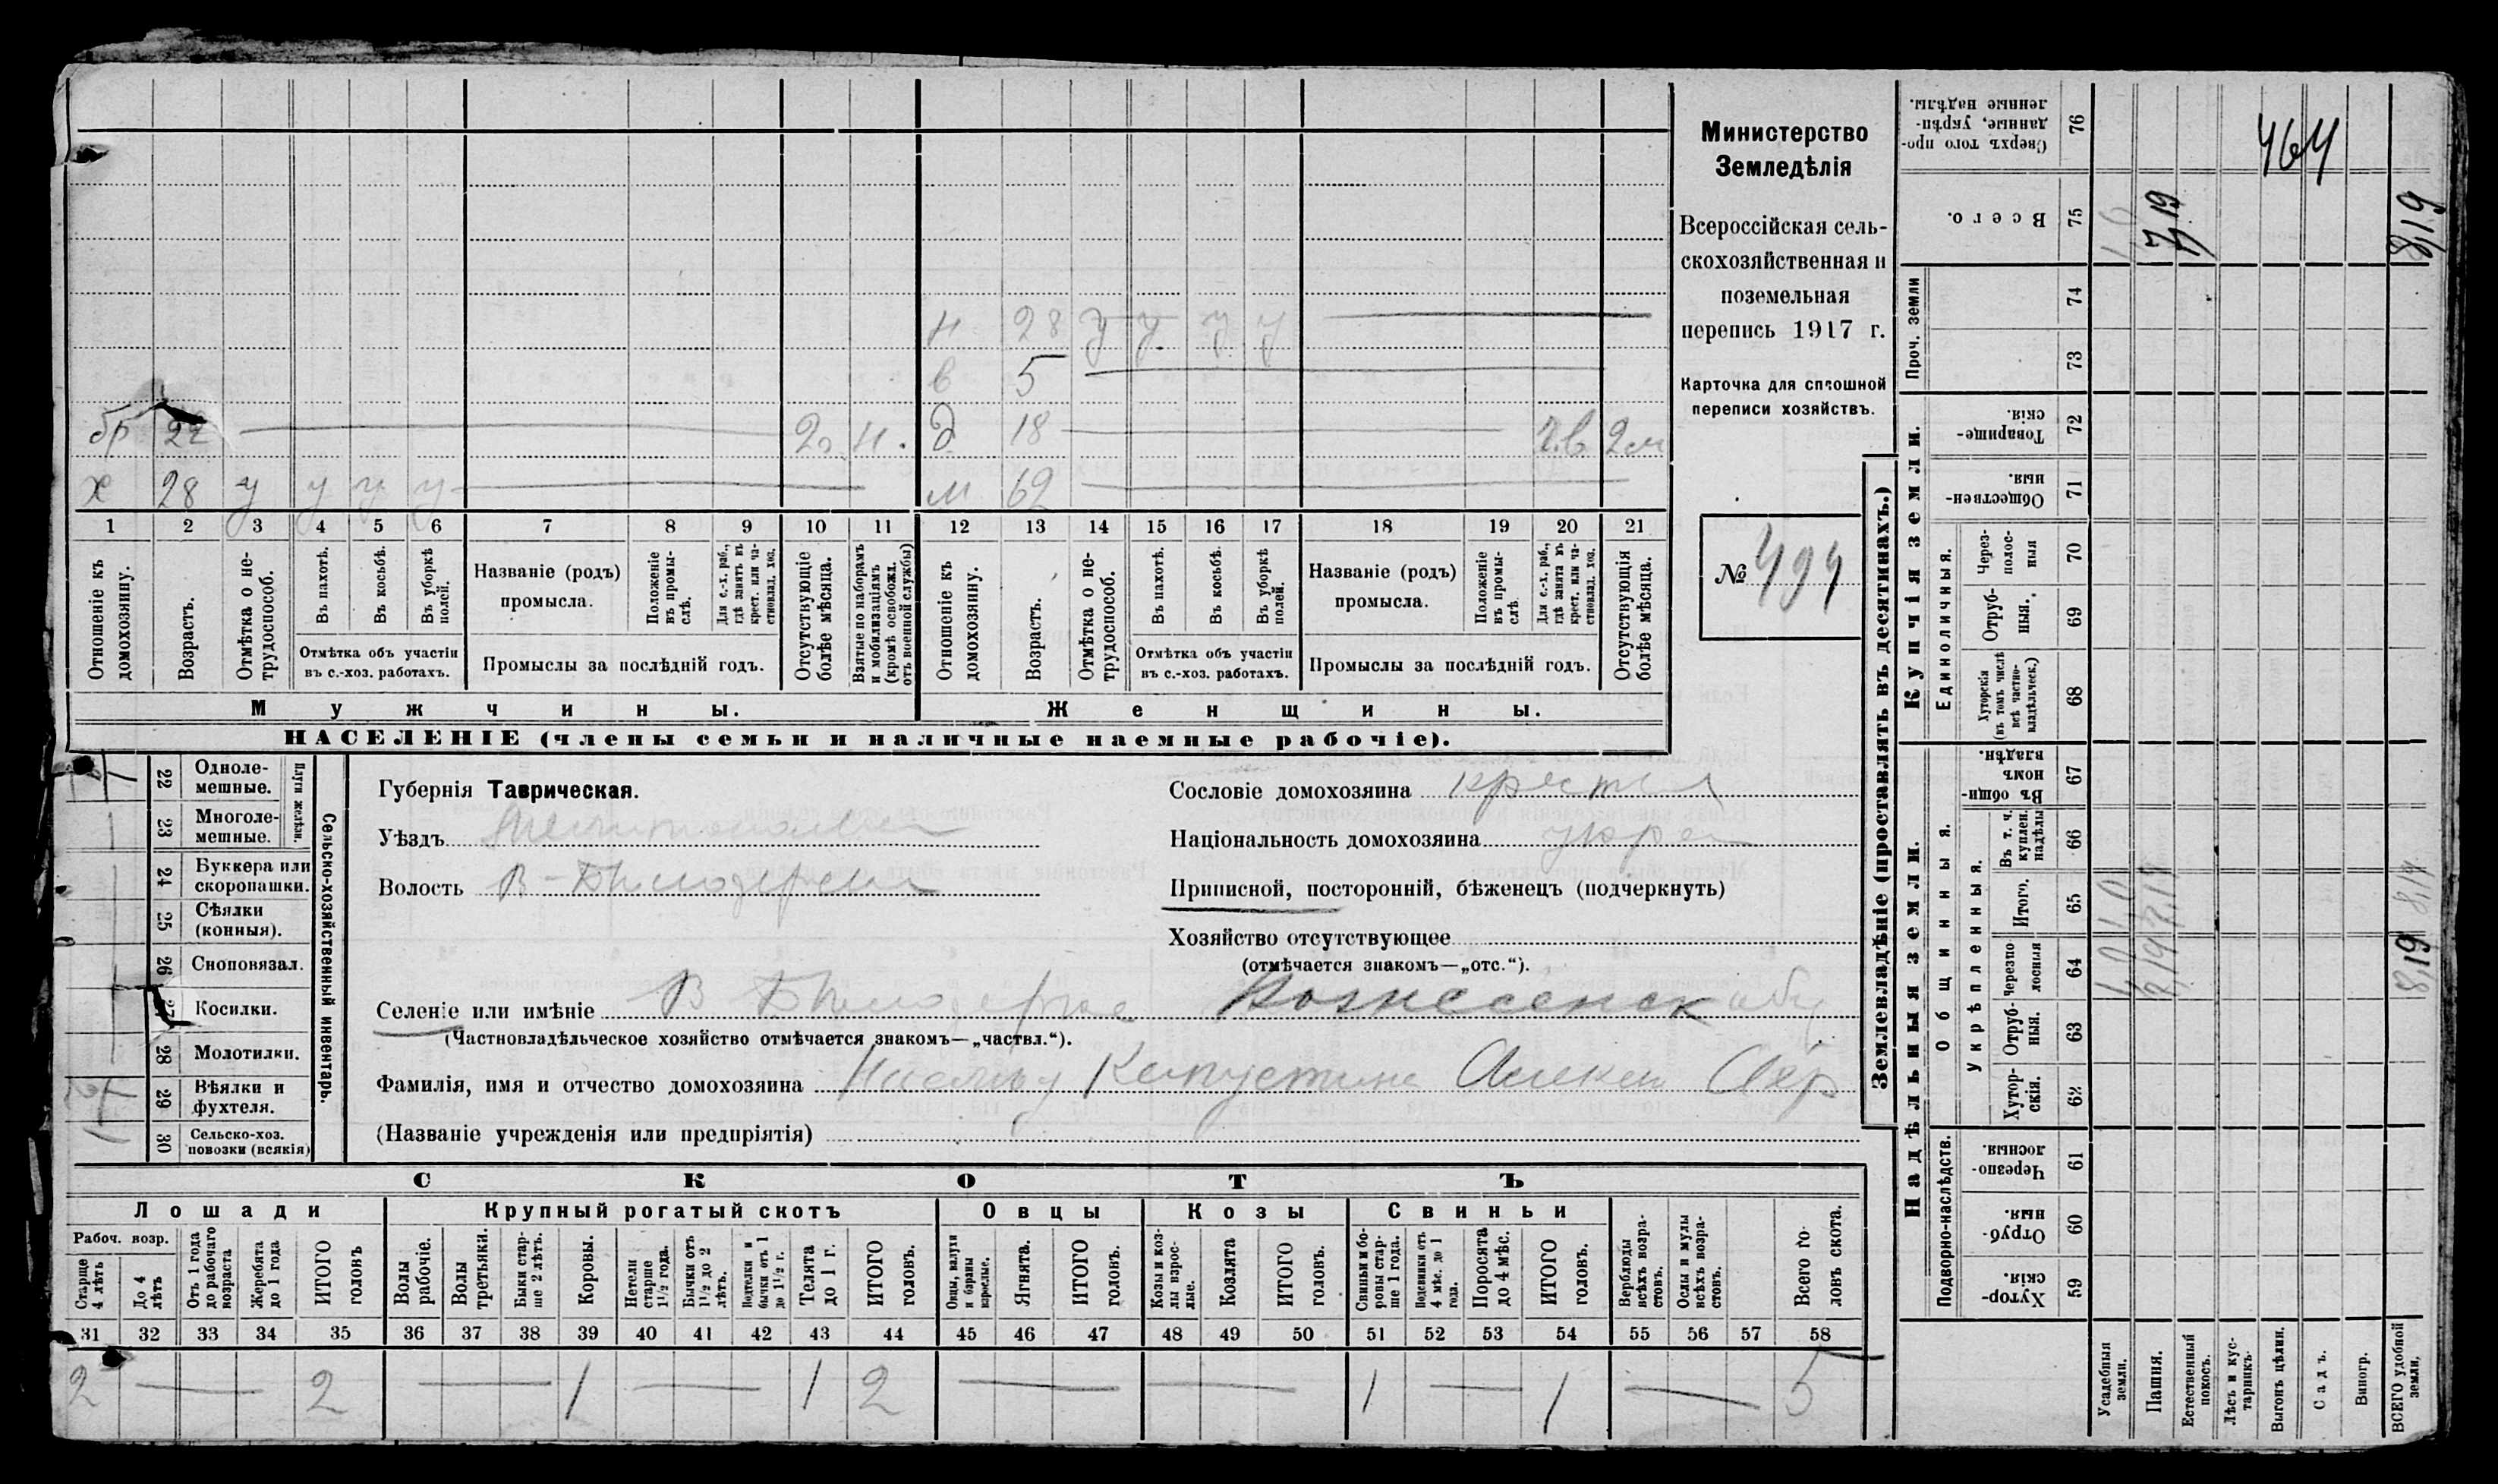 Министерство
Земледѣлія
Всероссійская сель-
скохозяйственная и
поземельная
перепись 1917 г.
Карточка для сплошной
переписи хозяйствъ.
№ 494
н 28 у у у у
в 5
бр 22 2 н. д 18 2м
х 28 у у у у м 62
1 2 3 4 5 6 7 8 9 10 11 12 13 14 15 16 17 18 19 20 21
Отношеніе къ домохозяину.
Возрастъ.
Отмѣтка о не-трудоспособ.
Въ пахотѣ.
Въ косьбѣ.
Въ уборкѣ полей.
Отмѣтка объ участіи въ с.-хоз. работахъ.
Названіе (родъ) промысла.
Положеніе въ промы-слѣ.
Для с.-х. раб., гдѣ занятъ въ крест. или ча-стновлад. хоз.
Промыслы за послѣдній годъ.
Отсутствующіе болѣе мѣсяца.
Взятые по наборамъ и мобилизаціямъ (кромѣ освобожд. отъ военной службы)
Отношеніе къ домохозяину.
Возрастъ.
Отмѣтка о не-трудоспособ.
Въ пахотѣ.
Въ косьбѣ.
Въ уборкѣ полей.
Отмѣтка объ участіи въ с.-хоз. работахъ.
Названіе (родъ) промысла.
Положеніе въ промы-слѣ
Для с.-х. раб., гдѣ занята въ крест. или ча-стновлад. хоз.
Промыслы за послѣдній годъ.
Отсутствующія болѣе мѣсяца.
Мужчины.
Женщины.
НАСЕЛЕНІЕ (члены семьи и наличные наемные рабочіе).
22 Одноле-мешные.
23 Многоле-мешные.
Плуги желѣзн.
24 Буккера или скоропашки.
25 Сѣялки (конныя).
26 Сноповязал.
27 Косилки.
28 Молотилки.
29 Вѣялки и фухтеля.
30 Сельско-хоз. повозки (всякія)
Сельско-хозяйственный инвентарь.
Губернія Таврическая.
Уѣздъ
Волость В-Бѣлозерская
Сословіе домохозяина крестья
Національность домохозяина укра
Приписной, посторонній, бѣженецъ (подчеркнуть)
Хозяйство отсутствующее
(отмѣчается знакомъ—„отс.“).
Селеніе или имѣніе В Бѣлозерка Вознесенск
(Частновладѣльческое хозяйство отмѣчается знакомъ—„частвл.“).
Фамилія, имя и отчество домохозяина Капустина Алексѣй
(Названіе учрежденія или предпріятія)
СКОТЪ
Лошади
Крупный рогатый скотъ
Овцы
Козы
Свиньи
Рабоч. возр.
Старше 4 лѣтъ
До 4 лѣтъ
Отъ 1 года до рабочаго возраста
Жеребята до 1 года
ИТОГО головъ
Волы рабочіе.
Волы третьяки.
Быки стар-ше 2 лѣтъ.
Коровы.
Нетели старше 1½ года.
Бычки отъ 1½ до 2 лѣтъ.
Подтелки и бычки отъ 1 до 1½ г.
Телята до 1 г.
ИТОГО головъ.
Овцы, валухи и бараны взрослые.
Ягнята.
ИТОГО головъ.
Козы и коз-лы взрос-лые.
Козлята
ИТОГО головъ.
Свиньи и бо-ровы стар-ше 1 года.
Подсвинки отъ 4 мѣс. до 1 года.
Поросята до 4 мѣс.
ИТОГО головъ.
Верблюды всѣхъ возра-стовъ.
Ослы и мулы всѣхъ возра-стовъ.
Всего го-ловъ скота.
31 32 33 34 35 36 37 38 39 40 41 42 43 44 45 46 47 48 49 50 51 52 53 54 55 56 57 58
2 — 2 — 1 — 1 2 — — 1 — 1 — 5
Землевладѣніе (проставлять въ десятинахъ.)
Надѣльныя земли.
Купчія земли.
Проч. земли
Подворно-наслѣдств.
Общинныя.
Укрѣпленныя.
Единоличныя.
Сверхъ того про-данные, укрѣп-ленные надѣлы. 76
Всего. 75
74
73
Товарище-скія. 72
Обществен-ныя. 71
Через-полос-ныя 70
Отруб-ныя. 69
Хуторскія (въ томъ числѣ всѣ частно-владѣльческ.) 68
Въ общи-номъ владѣн. 67
Въ т. ч. куплен. надѣлы 66
Итого. 65
Черезпо-лосныя 64
Отруб-ныя. 63
Хутор-скія. 62
Черезпо-лосныя 61
Отруб-ныя. 60
Хутор-скія. 59
Усадебныя земли.
Пашня.
Естественный покосъ.
Лѣсъ и кус-тарникъ.
Выгонъ цѣлин.
Садъ.
Виногр.
ВСЕГО удобной земли.
464
7,19
8,19
1,0
7,19
8,19
1,0
7,19
8,19